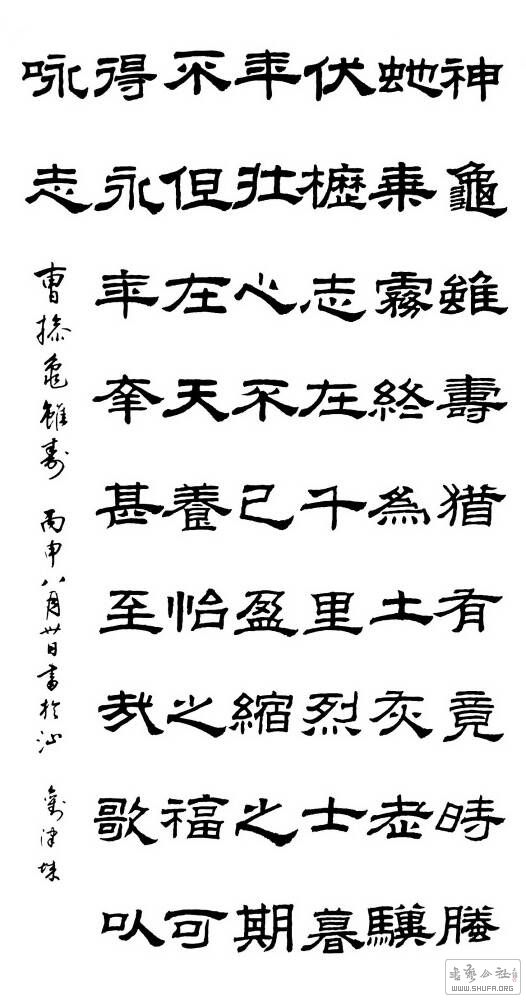 神龜雖壽猶有竟時螣
虵乘霧終為土灰老驥
伏櫪志在千里烈士暮
年壯心不已盈縮之期
不但在天養怡之福可
得永年幸甚至哉歌以
咏志
曹操龜雖壽 丙申八月廿日書於汕
书艺公社
WWW.SHUFA.ORG